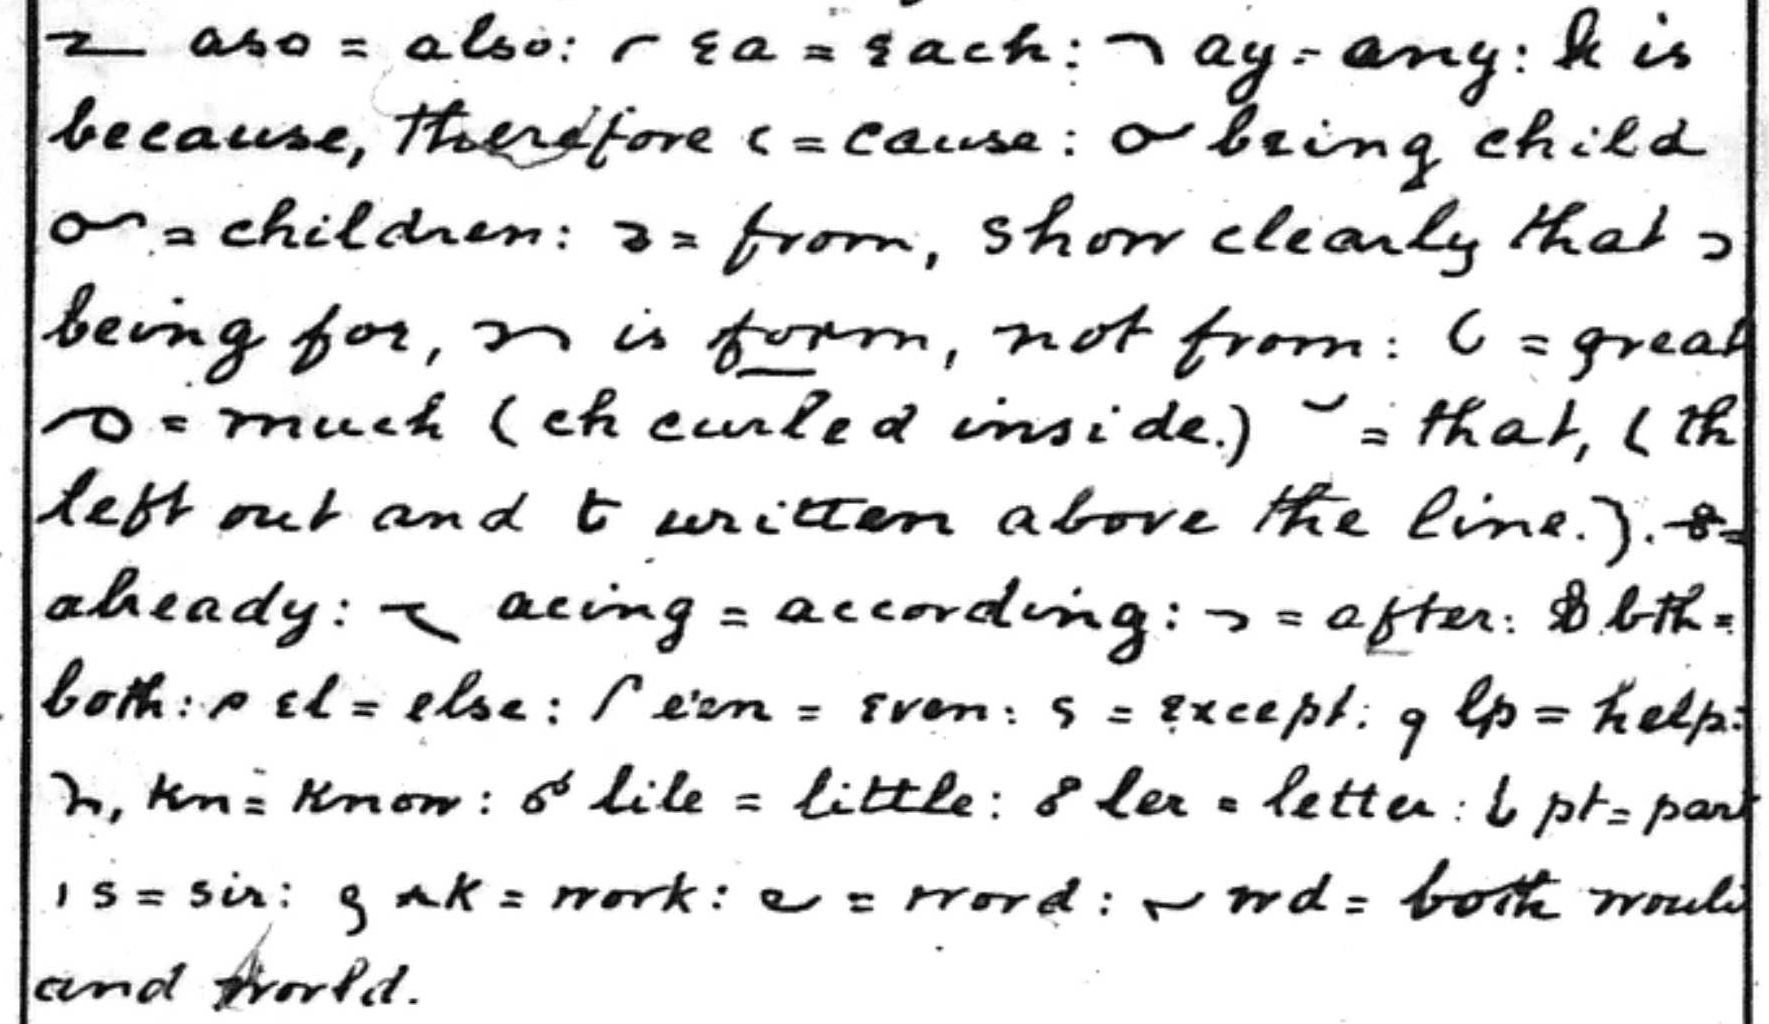 aso = also: Ea = Each: ay = any: k is
because, therefore c = cause: being child
= children: = from, show clearly that
being for, is form, not from: = great
= much (ch curled inside.) = that, (th
left out and t written above the line.). =
already: acing = according: = after: bth =
both: el = else: e'en = Even: = Except: lp = help:
kn = know: litle = little: ler = letter: pt = part
s = sir: wk = work: = word: wd = both would
and world.